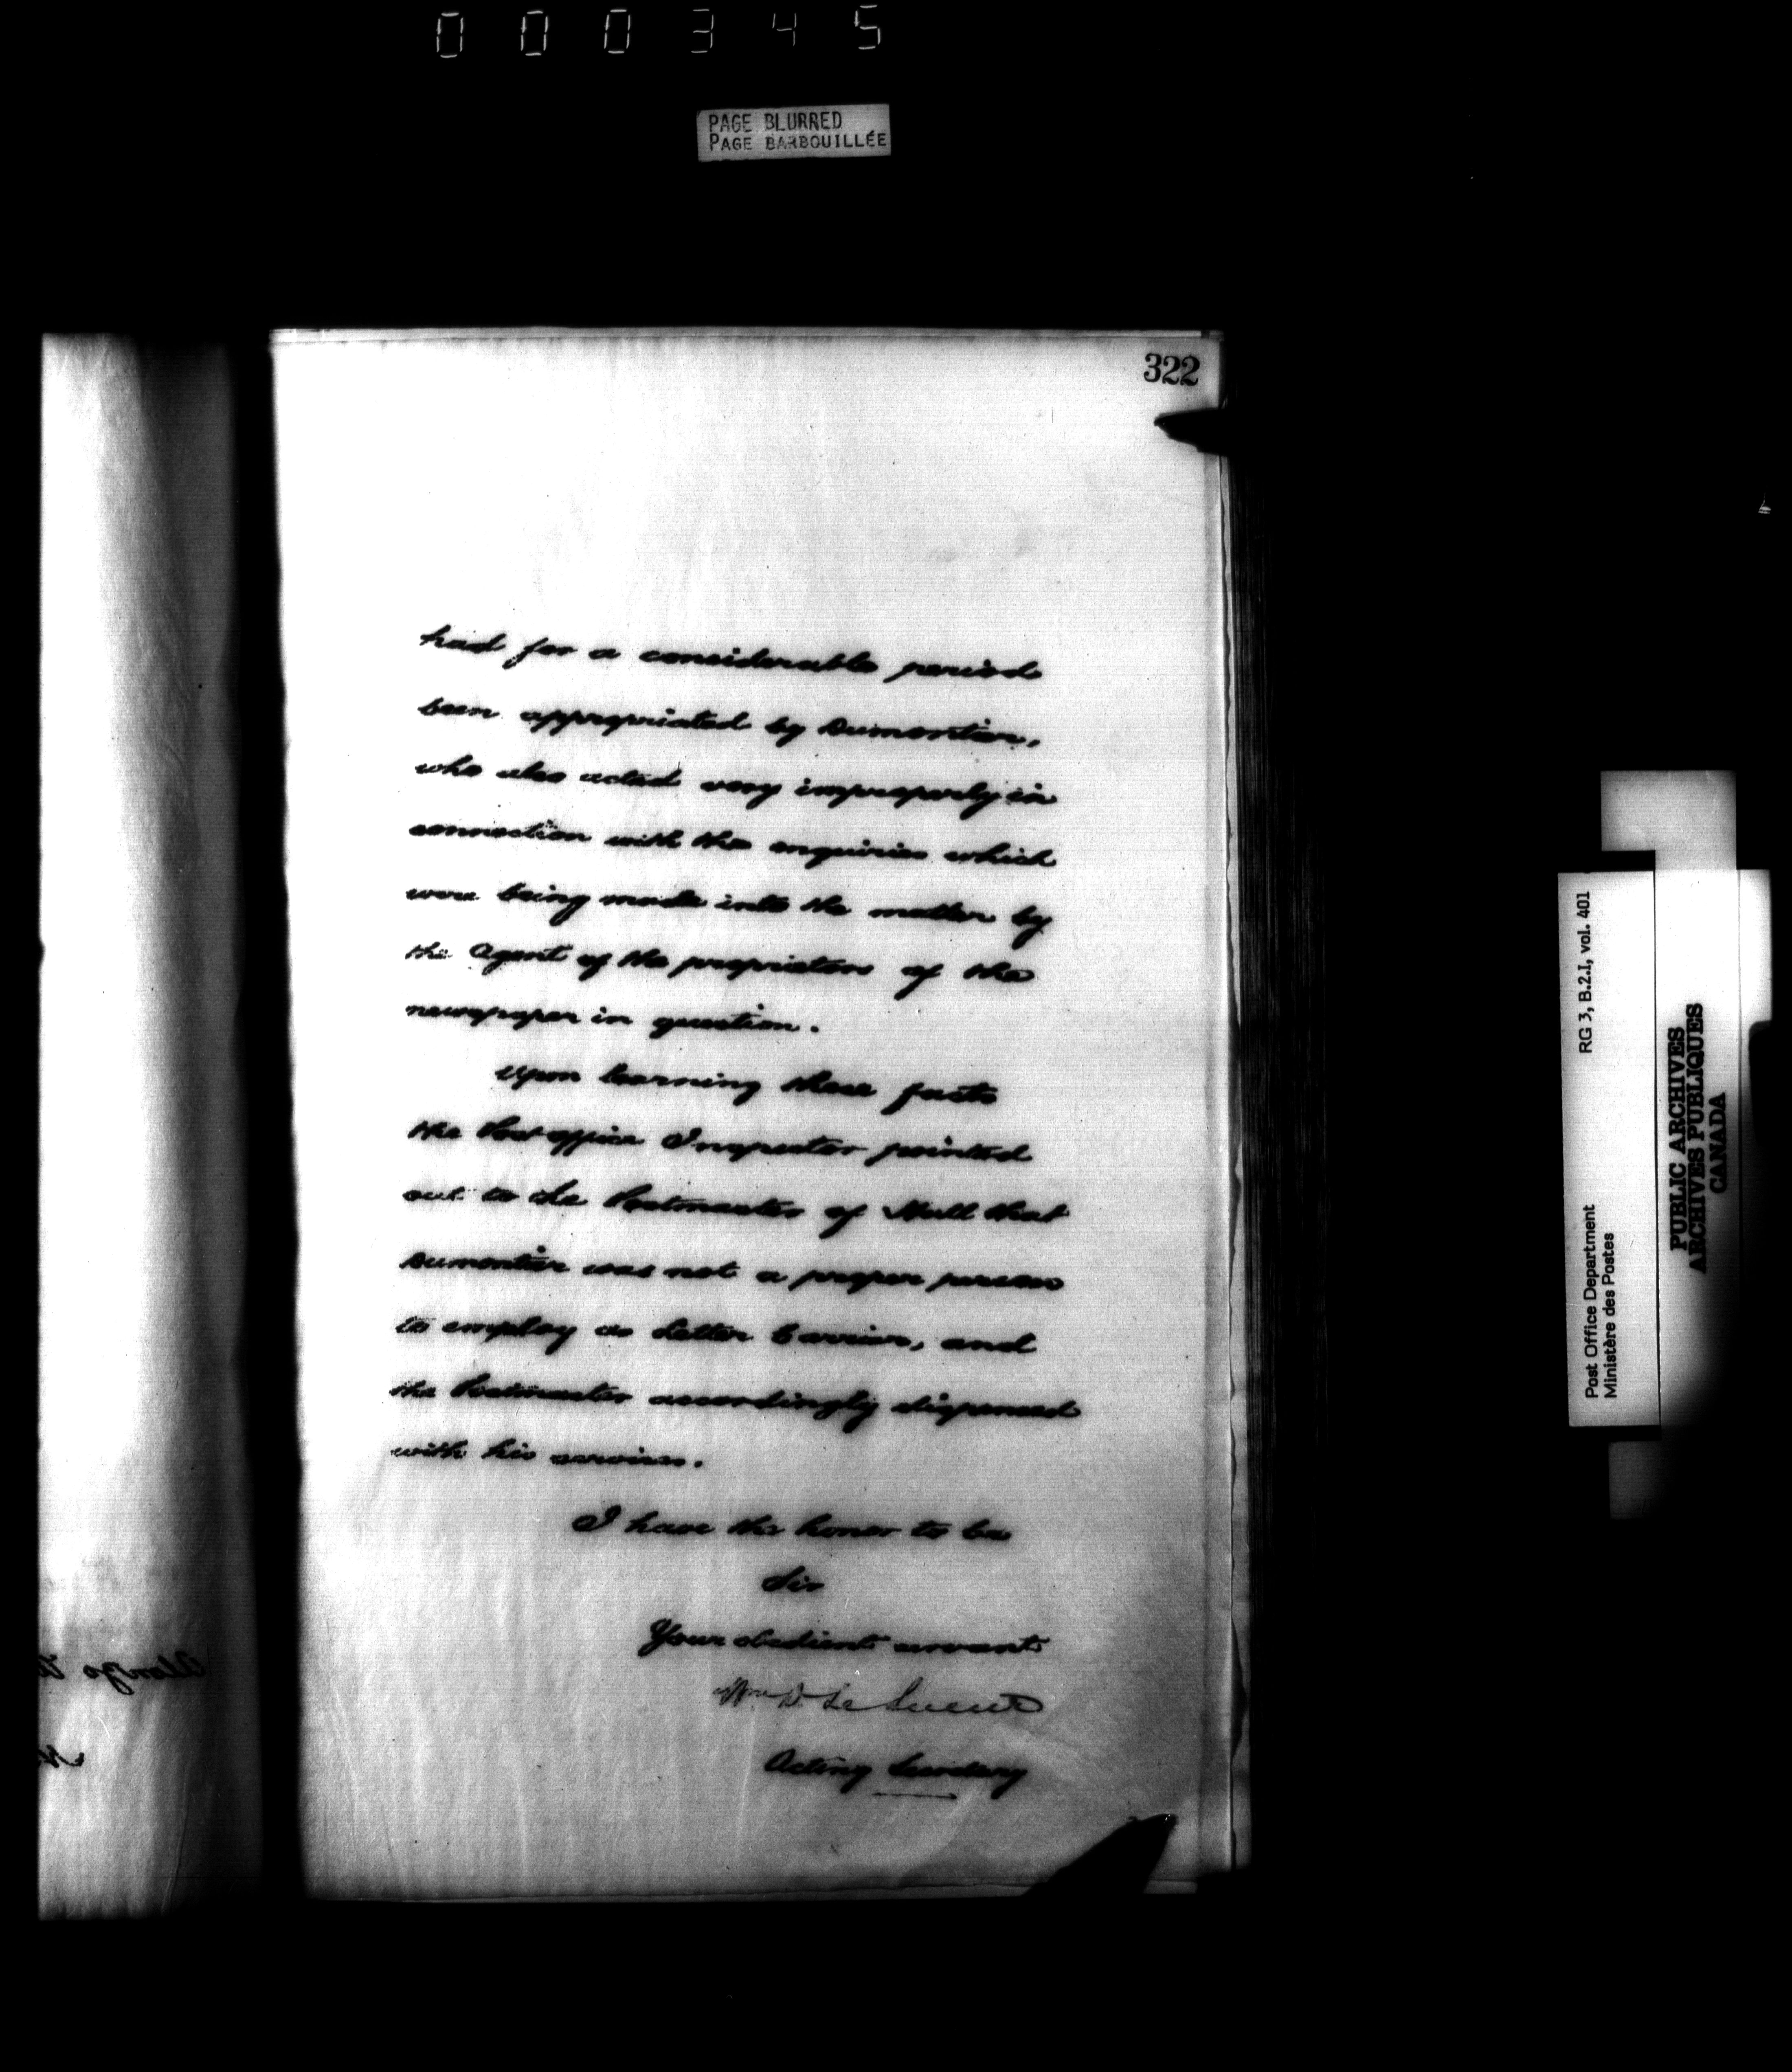 000345
PAGE BLURRED
PAGE BARBOUILLÉE
322
had for a considerable period
been appropriated by Dumontier,
who also acted very improperly in
connection with the enquiries which
were being made into the matter by
the Agent of the proprietors of the
newspaper in question.
Upon learning these facts
the Post office Inspector pointed
out to the Postmaster of Hull that
Dumontier was not a proper person
to employ as Letter Carrier, and
the Postmaster accordingly dispensed
with his services.
I have the honor to be
Sir
Your obedient servant
Wm D. Le Sueur
Acting Secretary
Alonzo
RG 3, B.2.I, vol. 401
Post Office Department
Ministère des Postes
PUBLIC ARCHIVES
ARCHIVES PUBLIQUES
CANADA